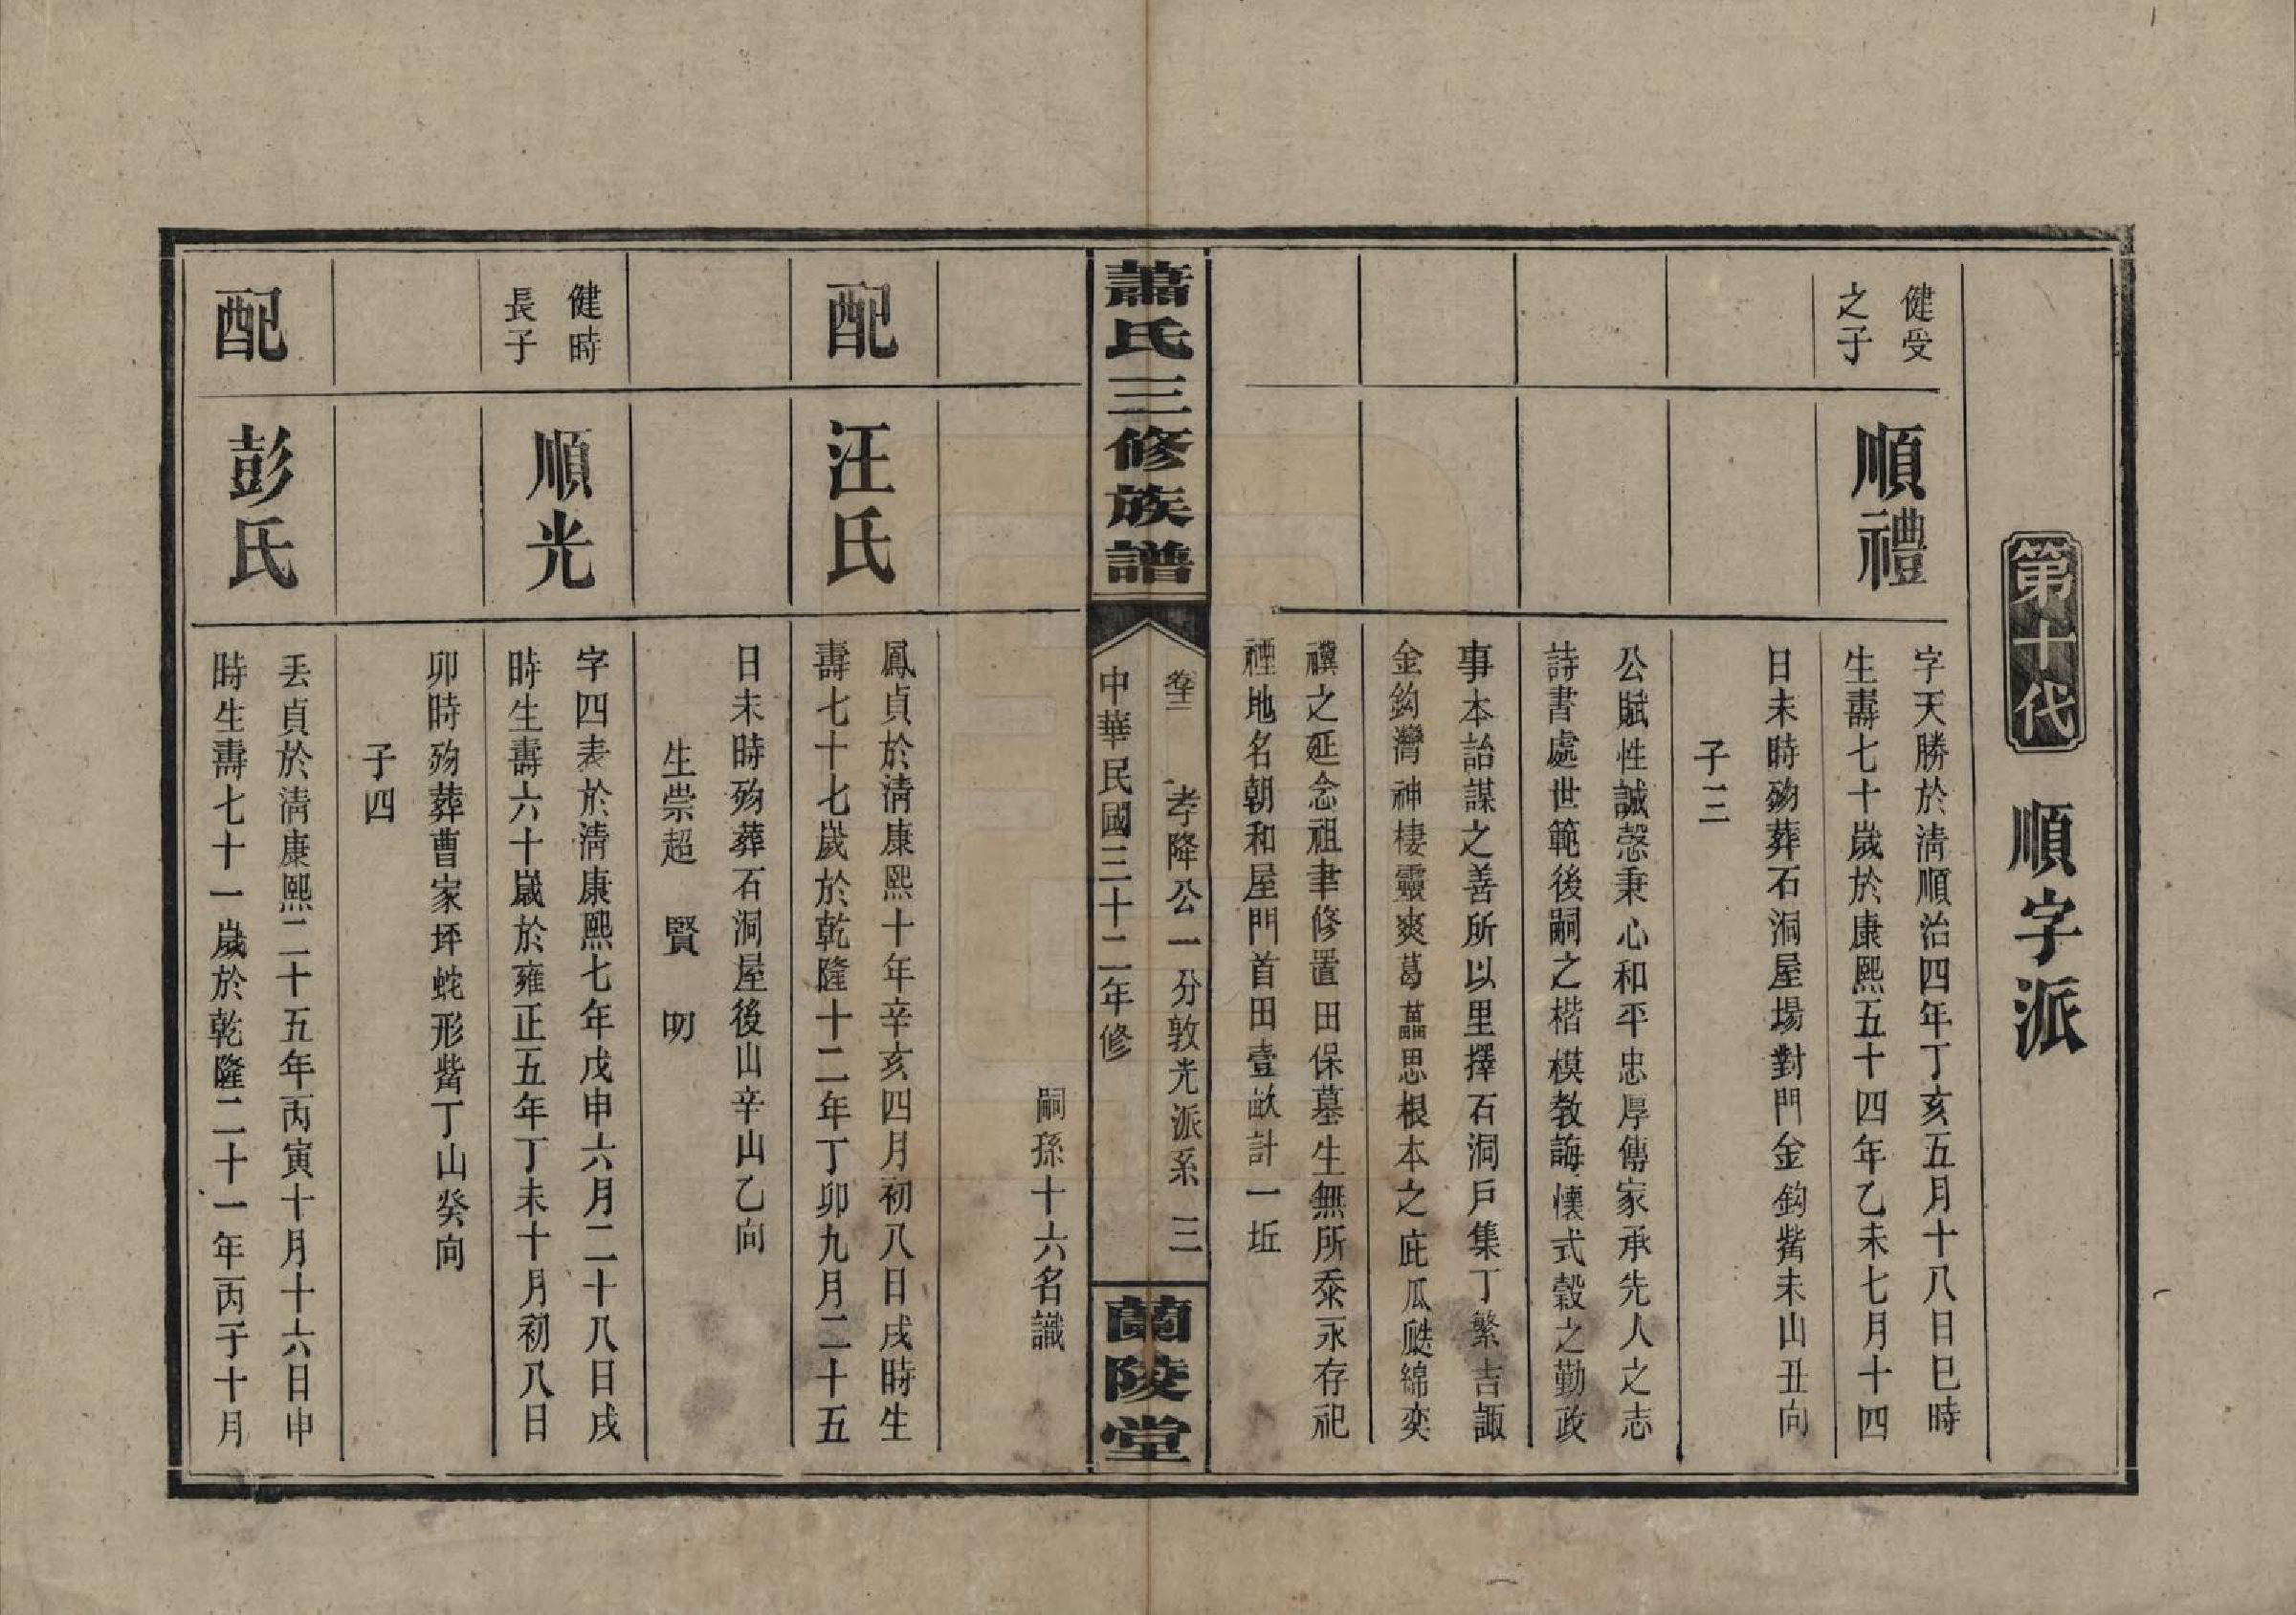 第十代 順字派
健受
之子
順禮
字天勝於清順治四年丁亥五月十八日巳時
生壽七十歲於康熙五十四年乙未七月十四
日未時歿葬石洞屋場對門金鈎觜未山丑向
子三
公賦性誠愨秉心和平忠厚傳家承先人之志
詩書處世範後嗣之楷模教誨懷式穀之勤政
事本詒謀之善所以里擇石洞戶集丁繁吉諏
金鈎灣神棲靈爽葛藟思根本之庇瓜瓞綿奕
禩之延念祖聿修置田保墓生無所忝永存祀
禋地名朝和屋門首田壹畝計一坵
蕭氏三修族譜
卷
孝降公一分敦光派系 三
中華民國三十二年修
蘭陵堂
嗣孫十六名識
配
汪氏
鳳貞於清康熙十年辛亥四月初八日戌時生
壽七十七歲於乾隆十二年丁卯九月二十五
日未時歿葬石洞屋後山辛山乙向
生崇超 賢 明
健時
長子
順光
字四表於清康熙七年戊申六月二十八日戌
時生壽六十歲於雍正五年丁未十月初八日
卯時歿葬曹家坪蛇形觜丁山癸向
子四
配
彭氏
丟貞於清康熙二十五年丙寅十月十六日申
時生壽七十一歲於乾隆二十一年丙子十月